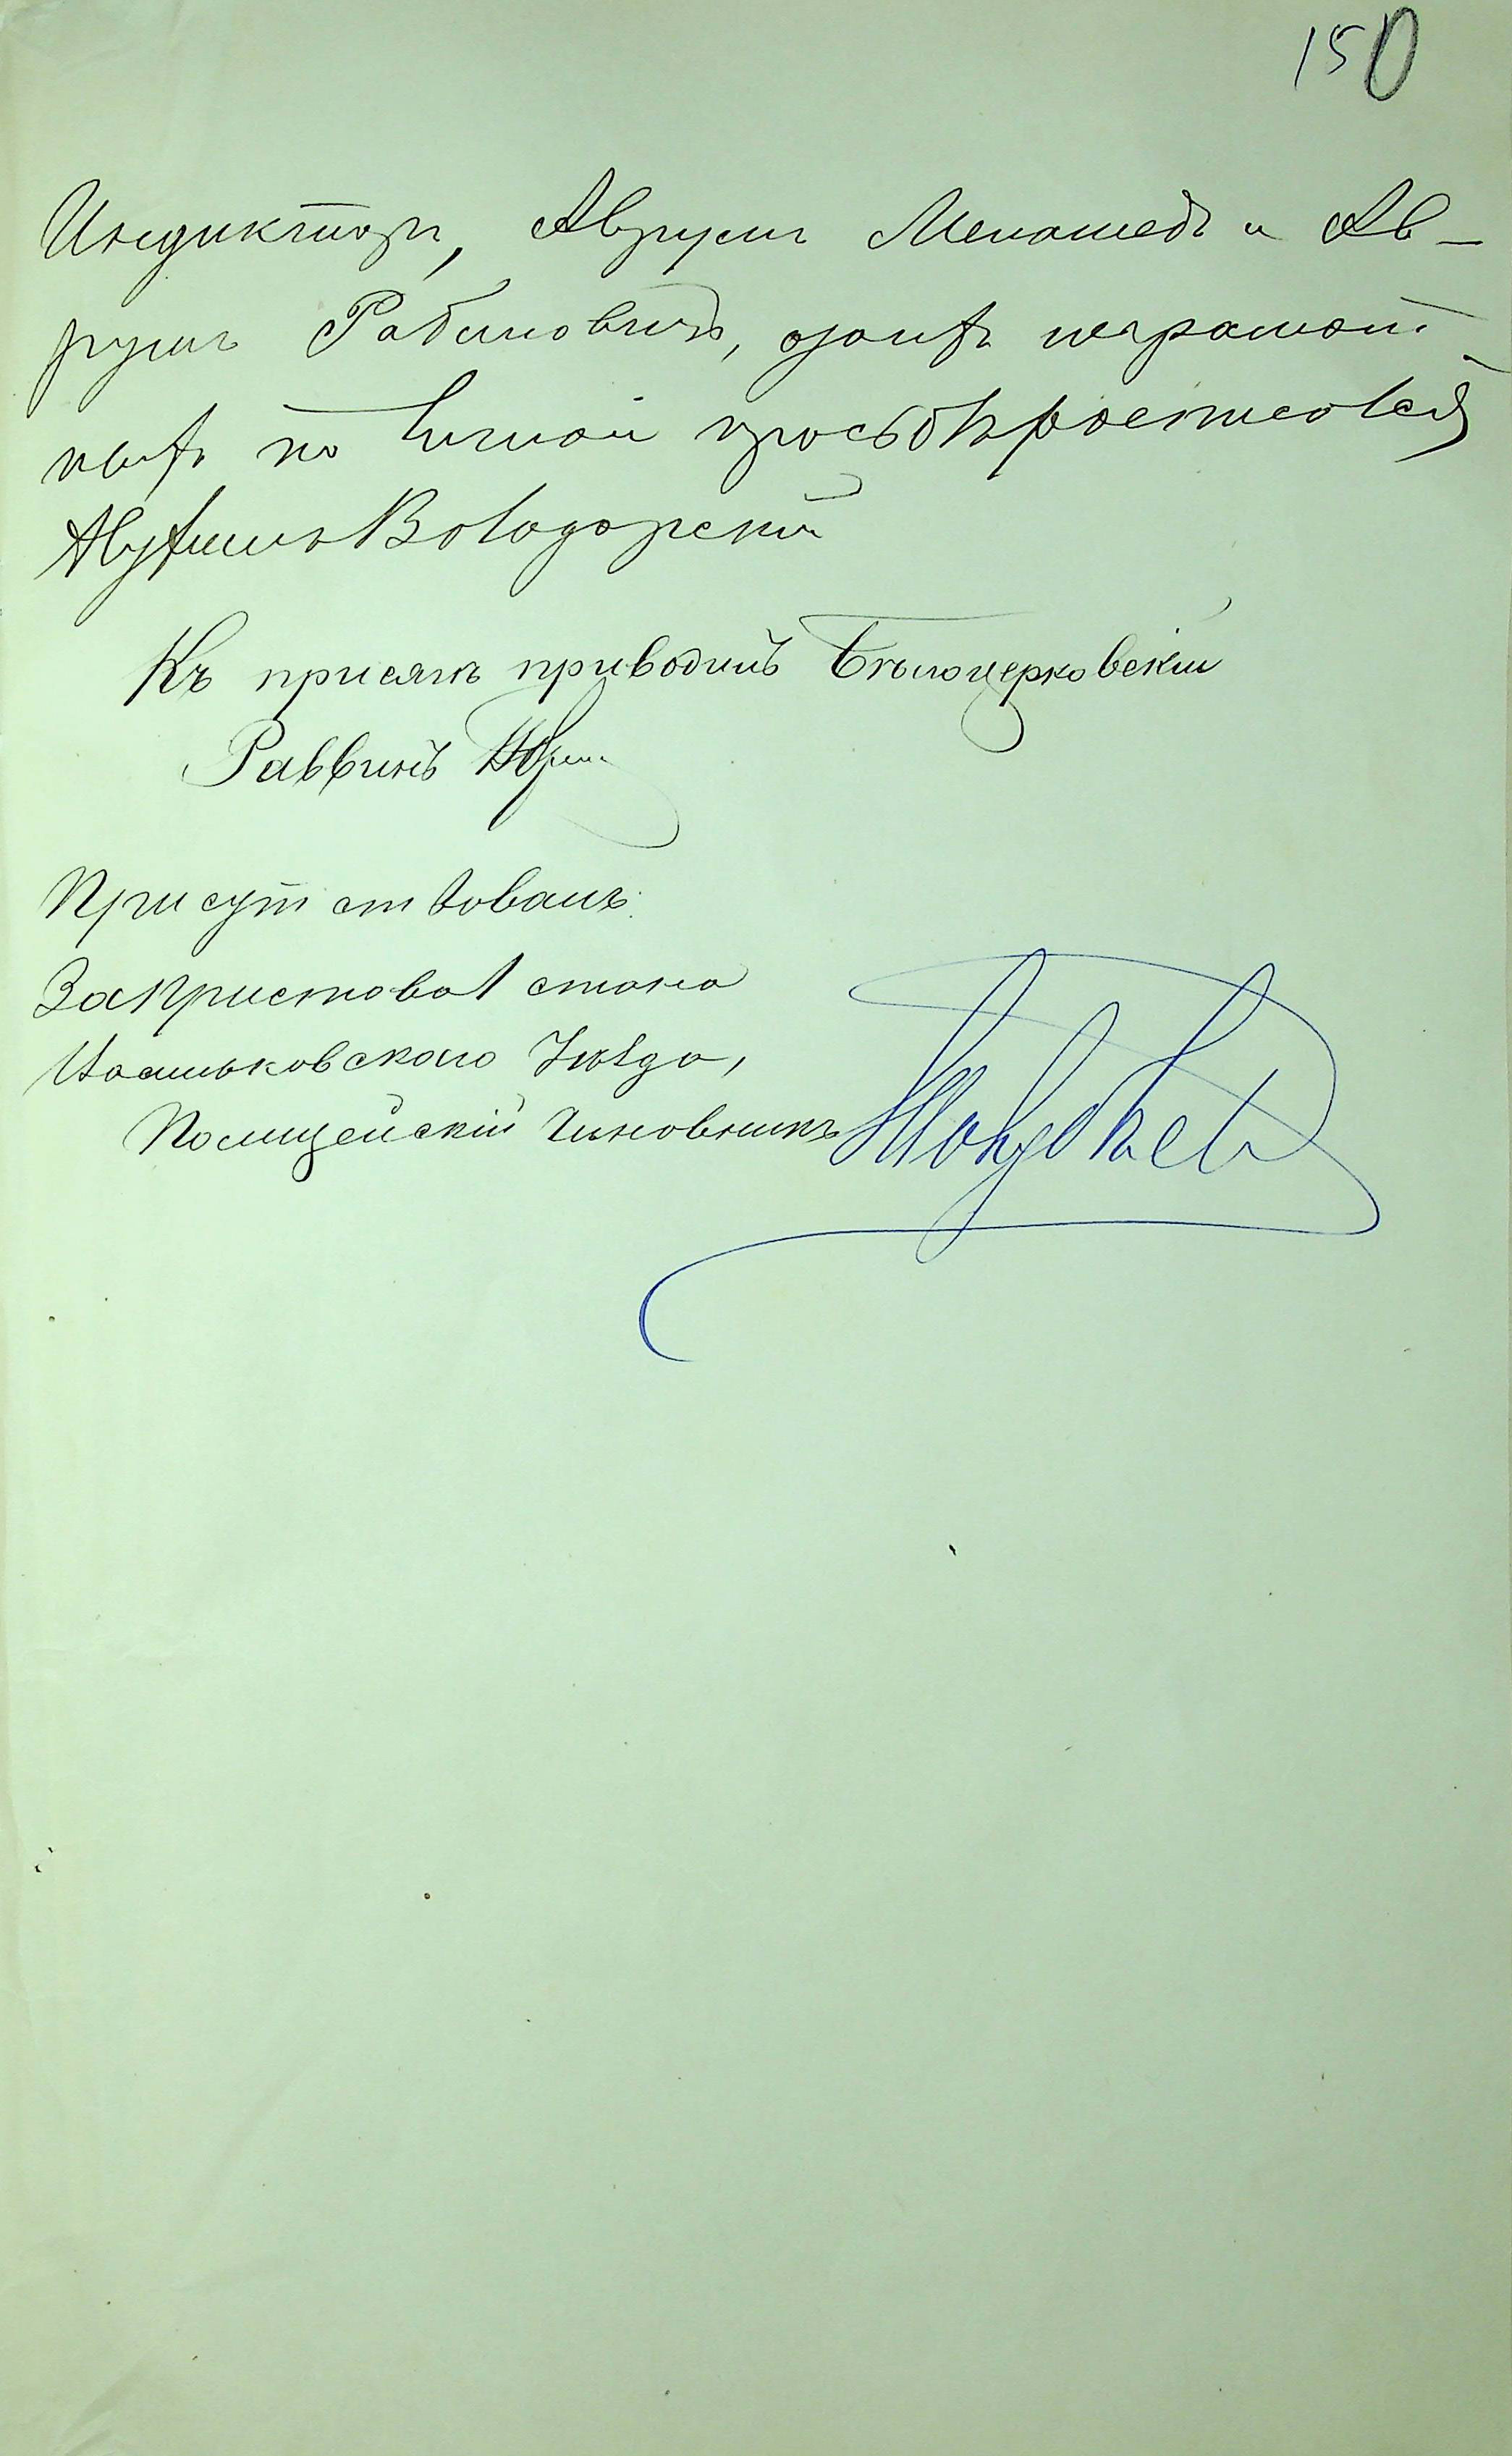 150
Индикторъ, Аврумъ Менашевъ и Ав-
румъ Рабиновичъ, а за нихъ неграмот-
ныхъ по личной просьбѣ росписовался
Володарскій
Къ присягѣ приводилъ Бѣлоцерковскій
Раввинъ
Присутствовалъ:
За Пристава 1 стана
Васильковскаго Уѣзда,
Полицейскій Чиновникъ